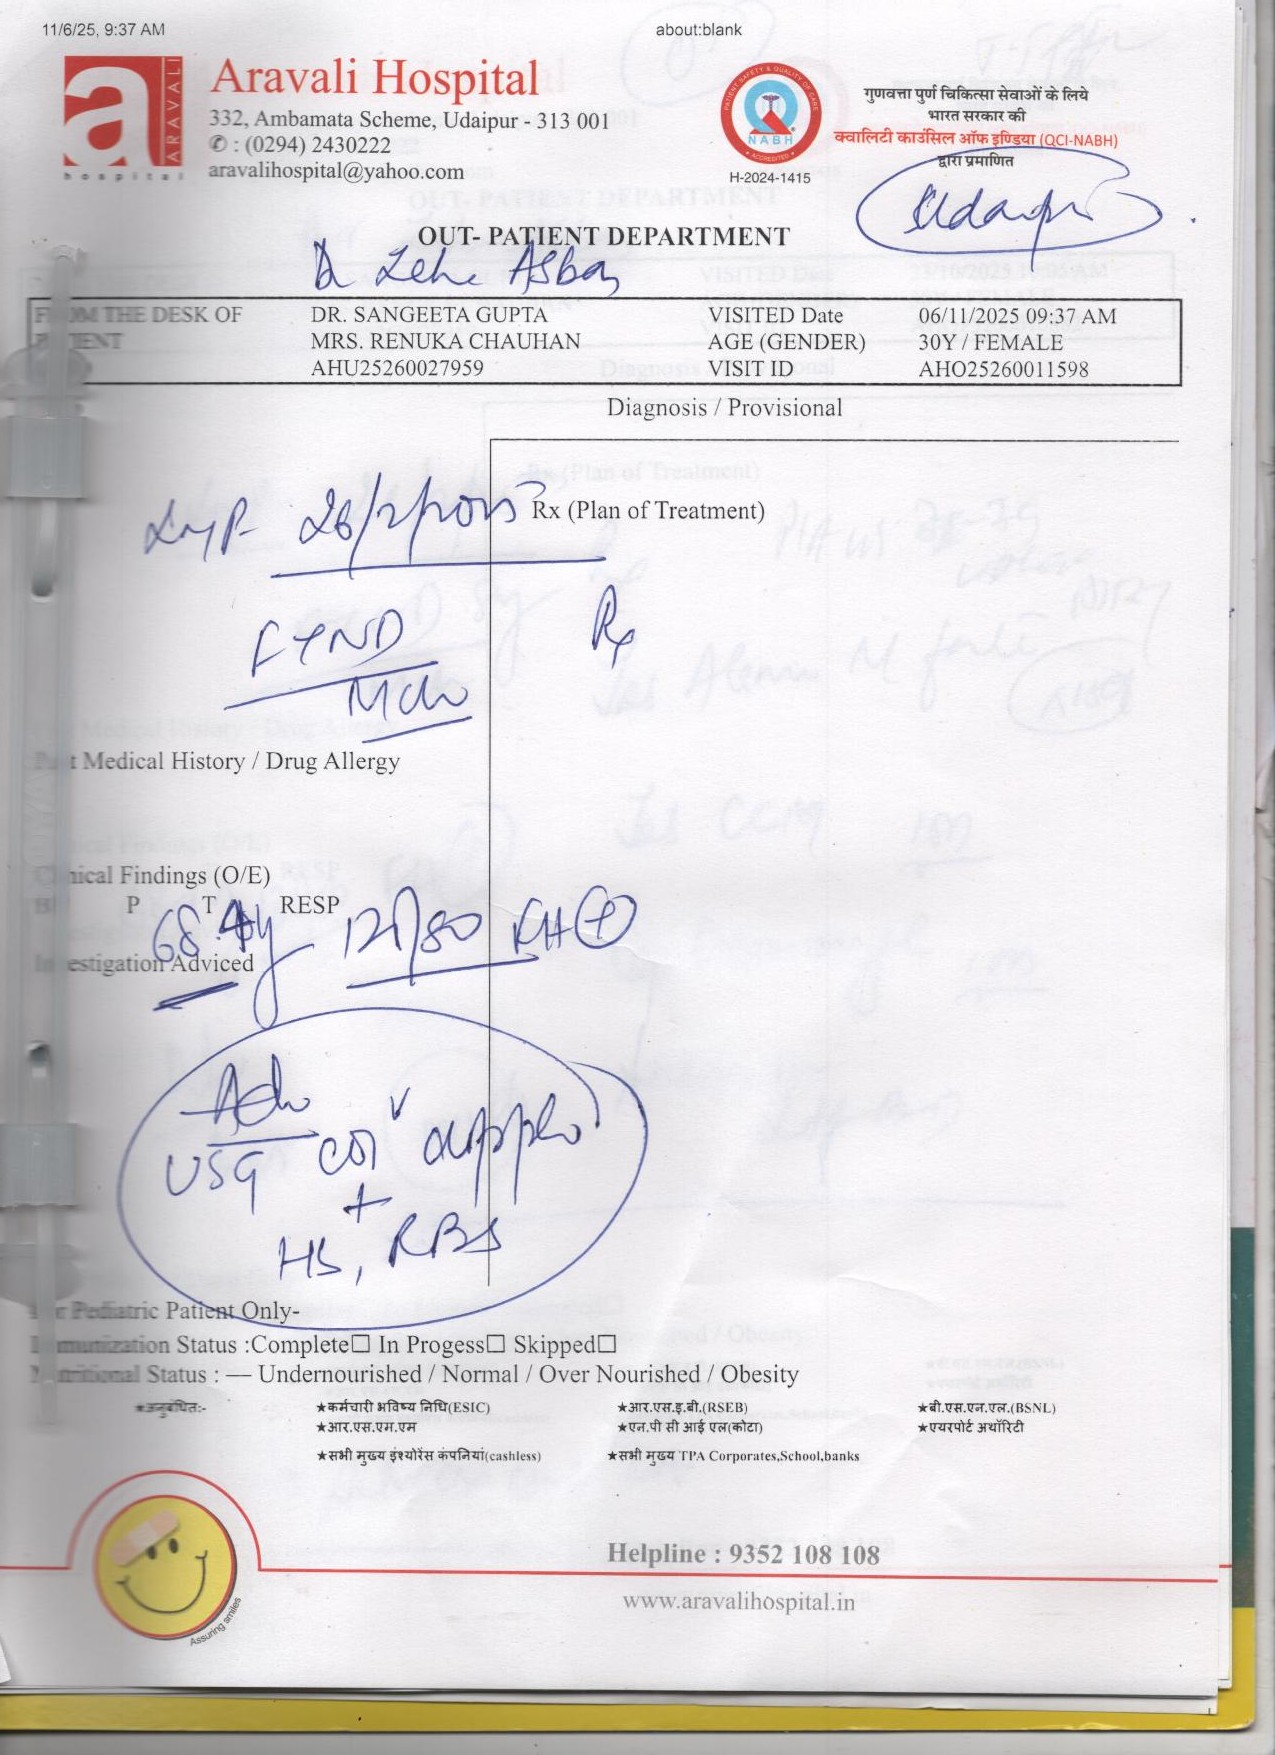 11/6/25, 9:37 AM about:blank
a ARAVALI
hospital
Aravali Hospital
332, Ambamata Scheme, Udaipur - 313 001
✆ : (0294) 2430222
aravalihospital@yahoo.com
PATIENT SAFETY & QUALITY OF CARE
NABH
ACCREDITED
H-2024-1415
गुणवत्ता पुर्ण चिकित्सा सेवाओं के लिये
भारत सरकार की
क्वालिटी काउंसिल ऑफ इण्डिया (QCI-NABH)
द्वारा प्रमाणित
Udaipur
OUT- PATIENT DEPARTMENT
FROM THE DESK OF DR. SANGEETA GUPTA VISITED Date 06/11/2025 09:37 AM
PATIENT MRS. RENUKA CHAUHAN AGE (GENDER) 30Y / FEMALE
AHU25260027959 VISIT ID AHO25260011598
Diagnosis / Provisional
LMP 26/2/2025
Rx (Plan of Treatment)
FTND
Rx
Past Medical History / Drug Allergy
Clinical Findings (O/E)
P T RESP
68.4 kg 120/80 RH +
Investigation Adviced
Adv
USG doppler
+
HB, RBS
For Pediatric Patient Only-
Immunization Status :Complete☐ In Progess☐ Skipped☐
Nutritional Status : — Undernourished / Normal / Over Nourished / Obesity
★अनुबंधित:- ★कर्मचारी भविष्य निधि(ESIC) ★आर.एस.इ.बी.(RSEB) ★बी.एस.एन.एल.(BSNL)
★आर.एस.एम.एम ★एन.पी सी आई एल(कोटा) ★एयरपोर्ट अथॉरिटी
★सभी मुख्य इंश्योरेंस कंपनियां(cashless) ★सभी मुख्य TPA Corporates,School,banks
Assuring smiles
Helpline : 9352 108 108
www.aravalihospital.in